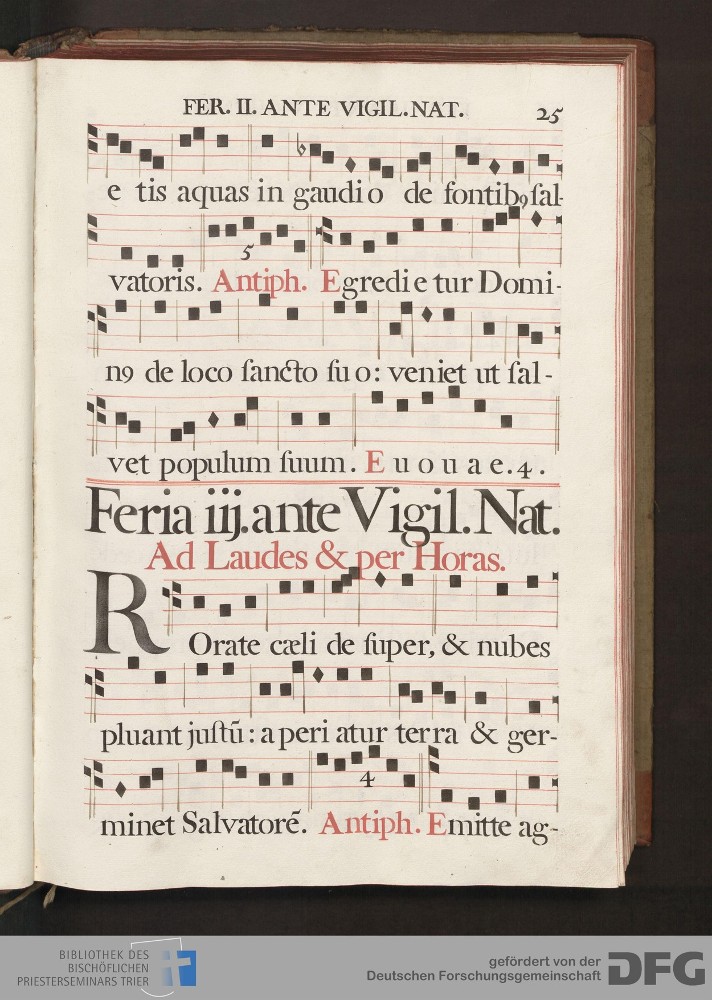 FER. II. ANTE VIGIL. NAT. 25
e tis aquas in gaudio de fontibꝯ ſal-
5
vatoris. Antiph. Egredietur Domi-
nꝯ de loco ſancto ſuo: veniet ut ſal-
vet populum ſuum. E u o u a e. 4.
Feria iij. ante Vigil. Nat.
Ad Laudes & per Horas.
ROrate cæli de ſuper, & nubes
pluant juſtū: aperiatur terra & ger-
4
minet Salvatorē. Antiph. Emitte ag-
BIBLIOTHEK DES
BISCHÖFLICHEN
PRIESTERSEMINARS TRIER
gefördert von der
Deutschen Forschungsgemeinschaft DFG